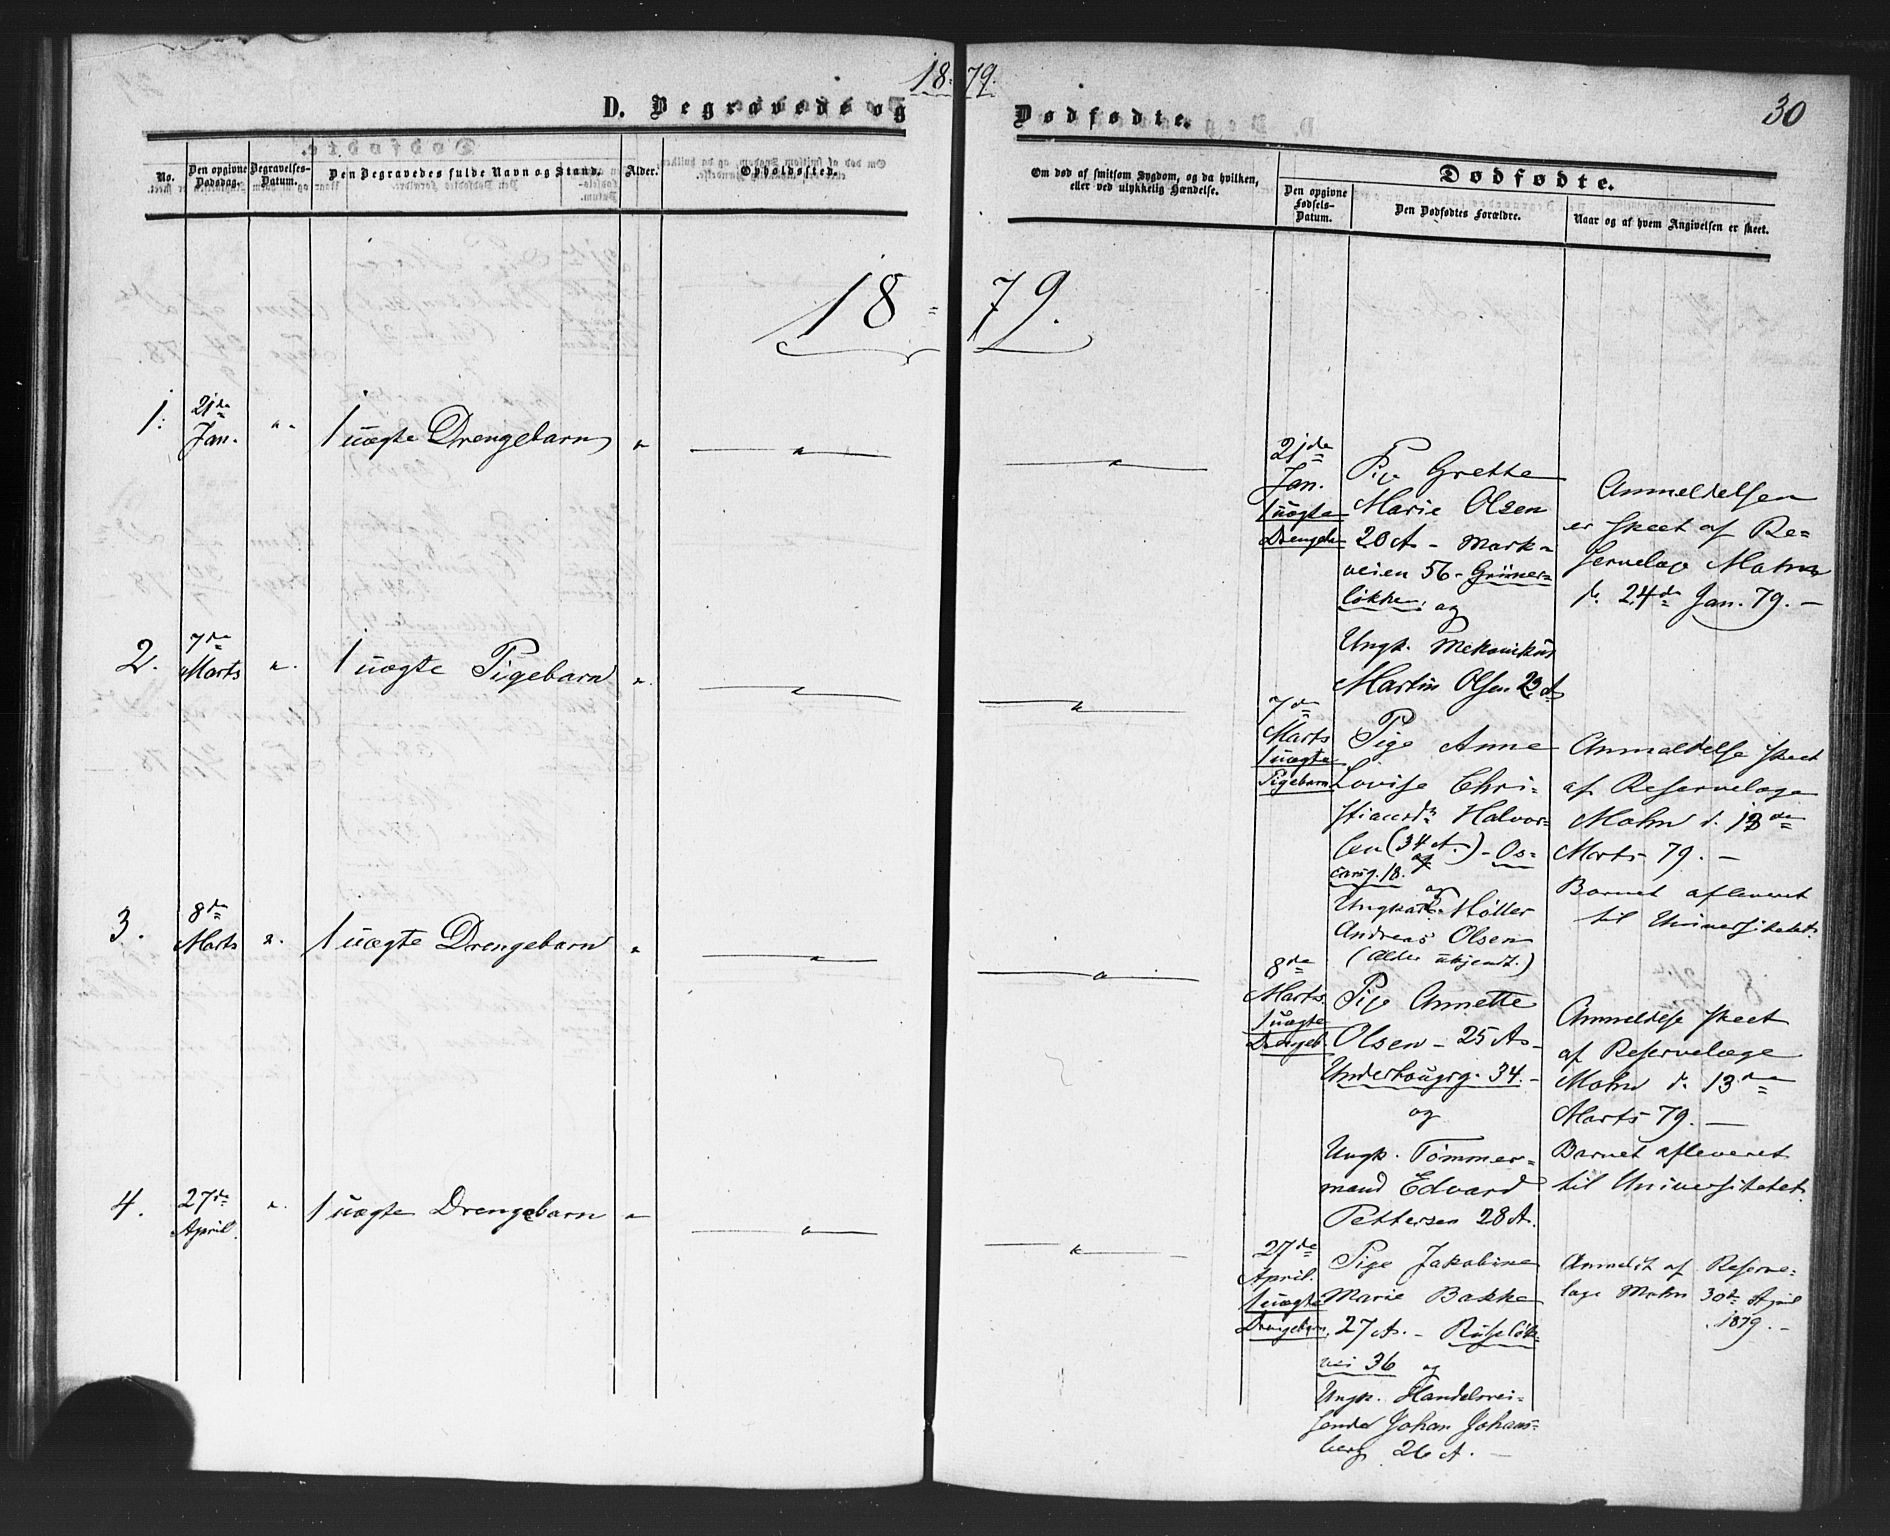 18 79.
D. Begravede og Dødfødte.
30
No.
Den opgivne Dødsdag.
Begravelses-Datum.
Den Begravedes fulde Navn og Stand.
Alder.
Opholdssted.
Om død af smitsom Sygdom, og da hvilken,
eller ved ulykkelig Hændelse.
Dødfødte.
Den opgivne
Fødsels-
Datum.
Den Dødfødtes Forældre.
Naar og af hvem Angivelsen er skeet.
18 = 79.
1. 21de Jan. " 1 uægte Drengebarn " " "
21de
Jan.
1 uægte
Drengeb.
Pige Grethe
Marie Olsen
20 A - Mark-
veien 56 - Grüner-
løkken; og
Ungk. Mekanikus
Martin Olsen 23 A
Anmeldelsen
er skeet af Re-
servelæge Mohn
d. 24de Jan. 79. -
2. 7de Marts " 1 uægte Pigebarn " " "
7de
Marts
1 uægte
Pigebarn
Pige Anne
Lovise Chri-
stiansdr Halvor-
sen (34 A.) - Os-
carsg. 18.
og
Ungkarl Møller
Andreas Olsen
(Alder ubekjendt.)
Anmeldelse skeet
af Reservelæge
Mohn d. 13de
Marts 79. -
Barnet afleveret
til Universitetet.
3. 8de Marts " 1 uægte Drengebarn " " "
8de
Marts.
1 uægte
Drengeb.
Pige Annette
Olsen - 25 A -
Underhaugsg. 34. -
og
Ungk. Tømmer-
mand Edvard
Pettersen 28 A.
Anmeldelse skeet
af Reservelæge
Mohn d. 13de
Marts 79. -
Barnet afleveret
til Universitetet.
4. 27de April. " 1 uægte Drengebarn " " "
27de
April.
1 uægte
Drengebarn.
Pige Jakobine
Marie Bakke
27 A. - Ruseløk-
vei 36 og
Ungk. Handelsrei-
sende Johan Johans-
berg 26 A. -
Anmeldt af Reserve-
læge Mohn 30te April
1879. -